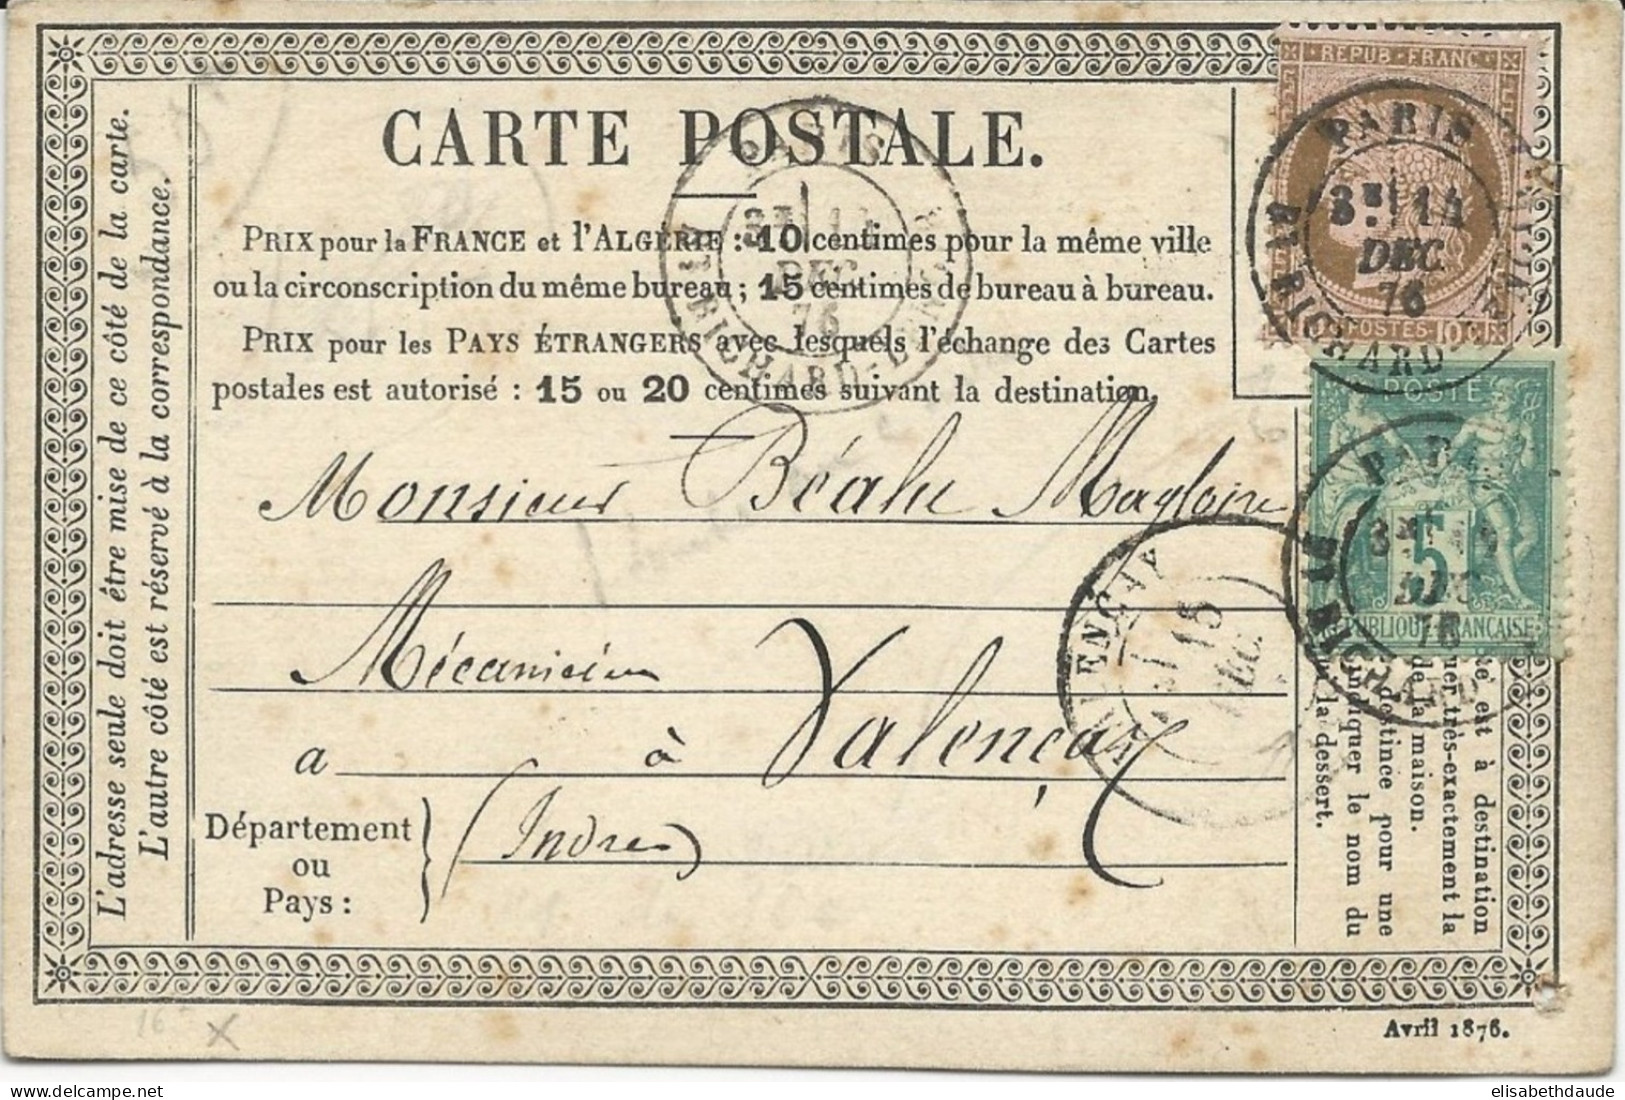 CARTE POSTALE.
PRIX pour la FRANCE et l'ALGÉRIE : 10 centimes pour la même ville
ou la circonscription du même bureau ; 15 centimes de bureau à bureau.
PRIX pour les PAYS ÉTRANGERS avec lesquels l'échange des Cartes
postales est autorisé : 15 ou 20 centimes suivant la destination.
Monsieur Béalu Magloire
Mécanicien
a à Valençay
Département
ou
Pays :
(Indre)
L'adresse seule doit être mise de ce côté de la carte.
L'autre côté est réservé à la correspondance.
REPUB·FRANC
POSTES 10 C
PARIS
3E 14
DEC.
76
BD RICHARD-LENOIR
POSTE
5
RÉPUBLIQUE FRANÇAISE
PARIS
3E
DEC
76
RICHARD
PARIS
3E
DEC
76
RICHARD-LENOIR
VALENÇAY
15
DEC.
est à destination
très-exactement la
de la maison.
destinée pour une
indiquer le nom du
la dessert.
Avril 1876.
16
elisabethdaude